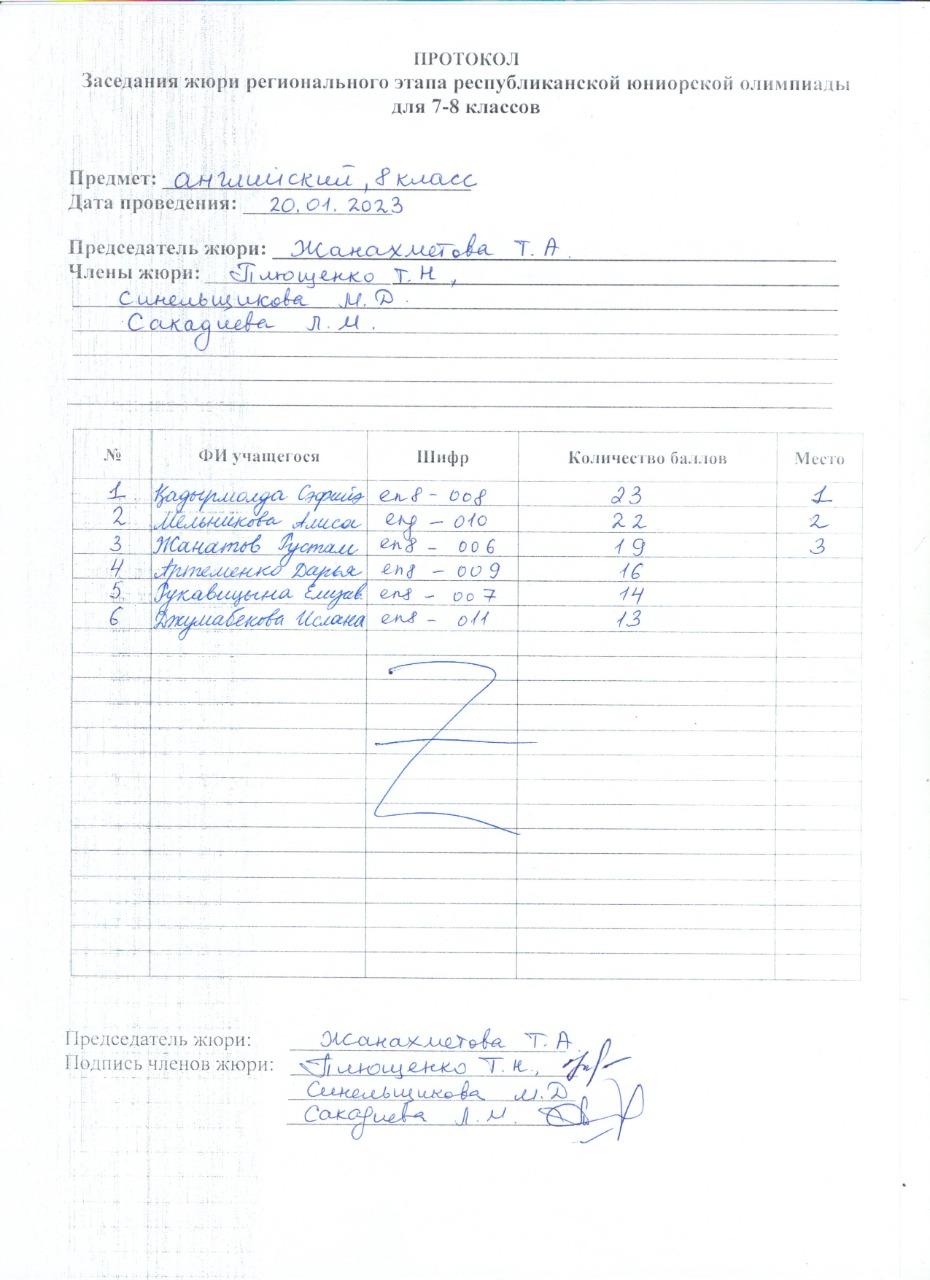 ПРОТОКОЛ
Заседания жюри регионального этапа республиканской юниорской олимпиады
для 7-8 классов
Предмет: английский, 8 класс
Дата проведения: 20.01.2023
Председатель жюри: Жанахметова Т.А.
Члены жюри: Плющенко Т.Н,
Синельщикова М.Д.
Сакадиева Л.М.
№ ФИ учащегося Шифр Количество баллов Место
1 Қадырмолда en8-008 23 1
2 Мельникова Алиса eng-010 22 2
3 Жанатов Рустам en8-006 19 3
4 Артеменко Дарья en8-009 16
5 Рукавицына Елизав en8-007 14
6 Джумабекова Ислана en8-011 13
Председатель жюри: Жанахметова Т.А.
Подпись членов жюри: Плющенко Т.Н.,
Синельщикова М.Д
Сакадиева Л.М.